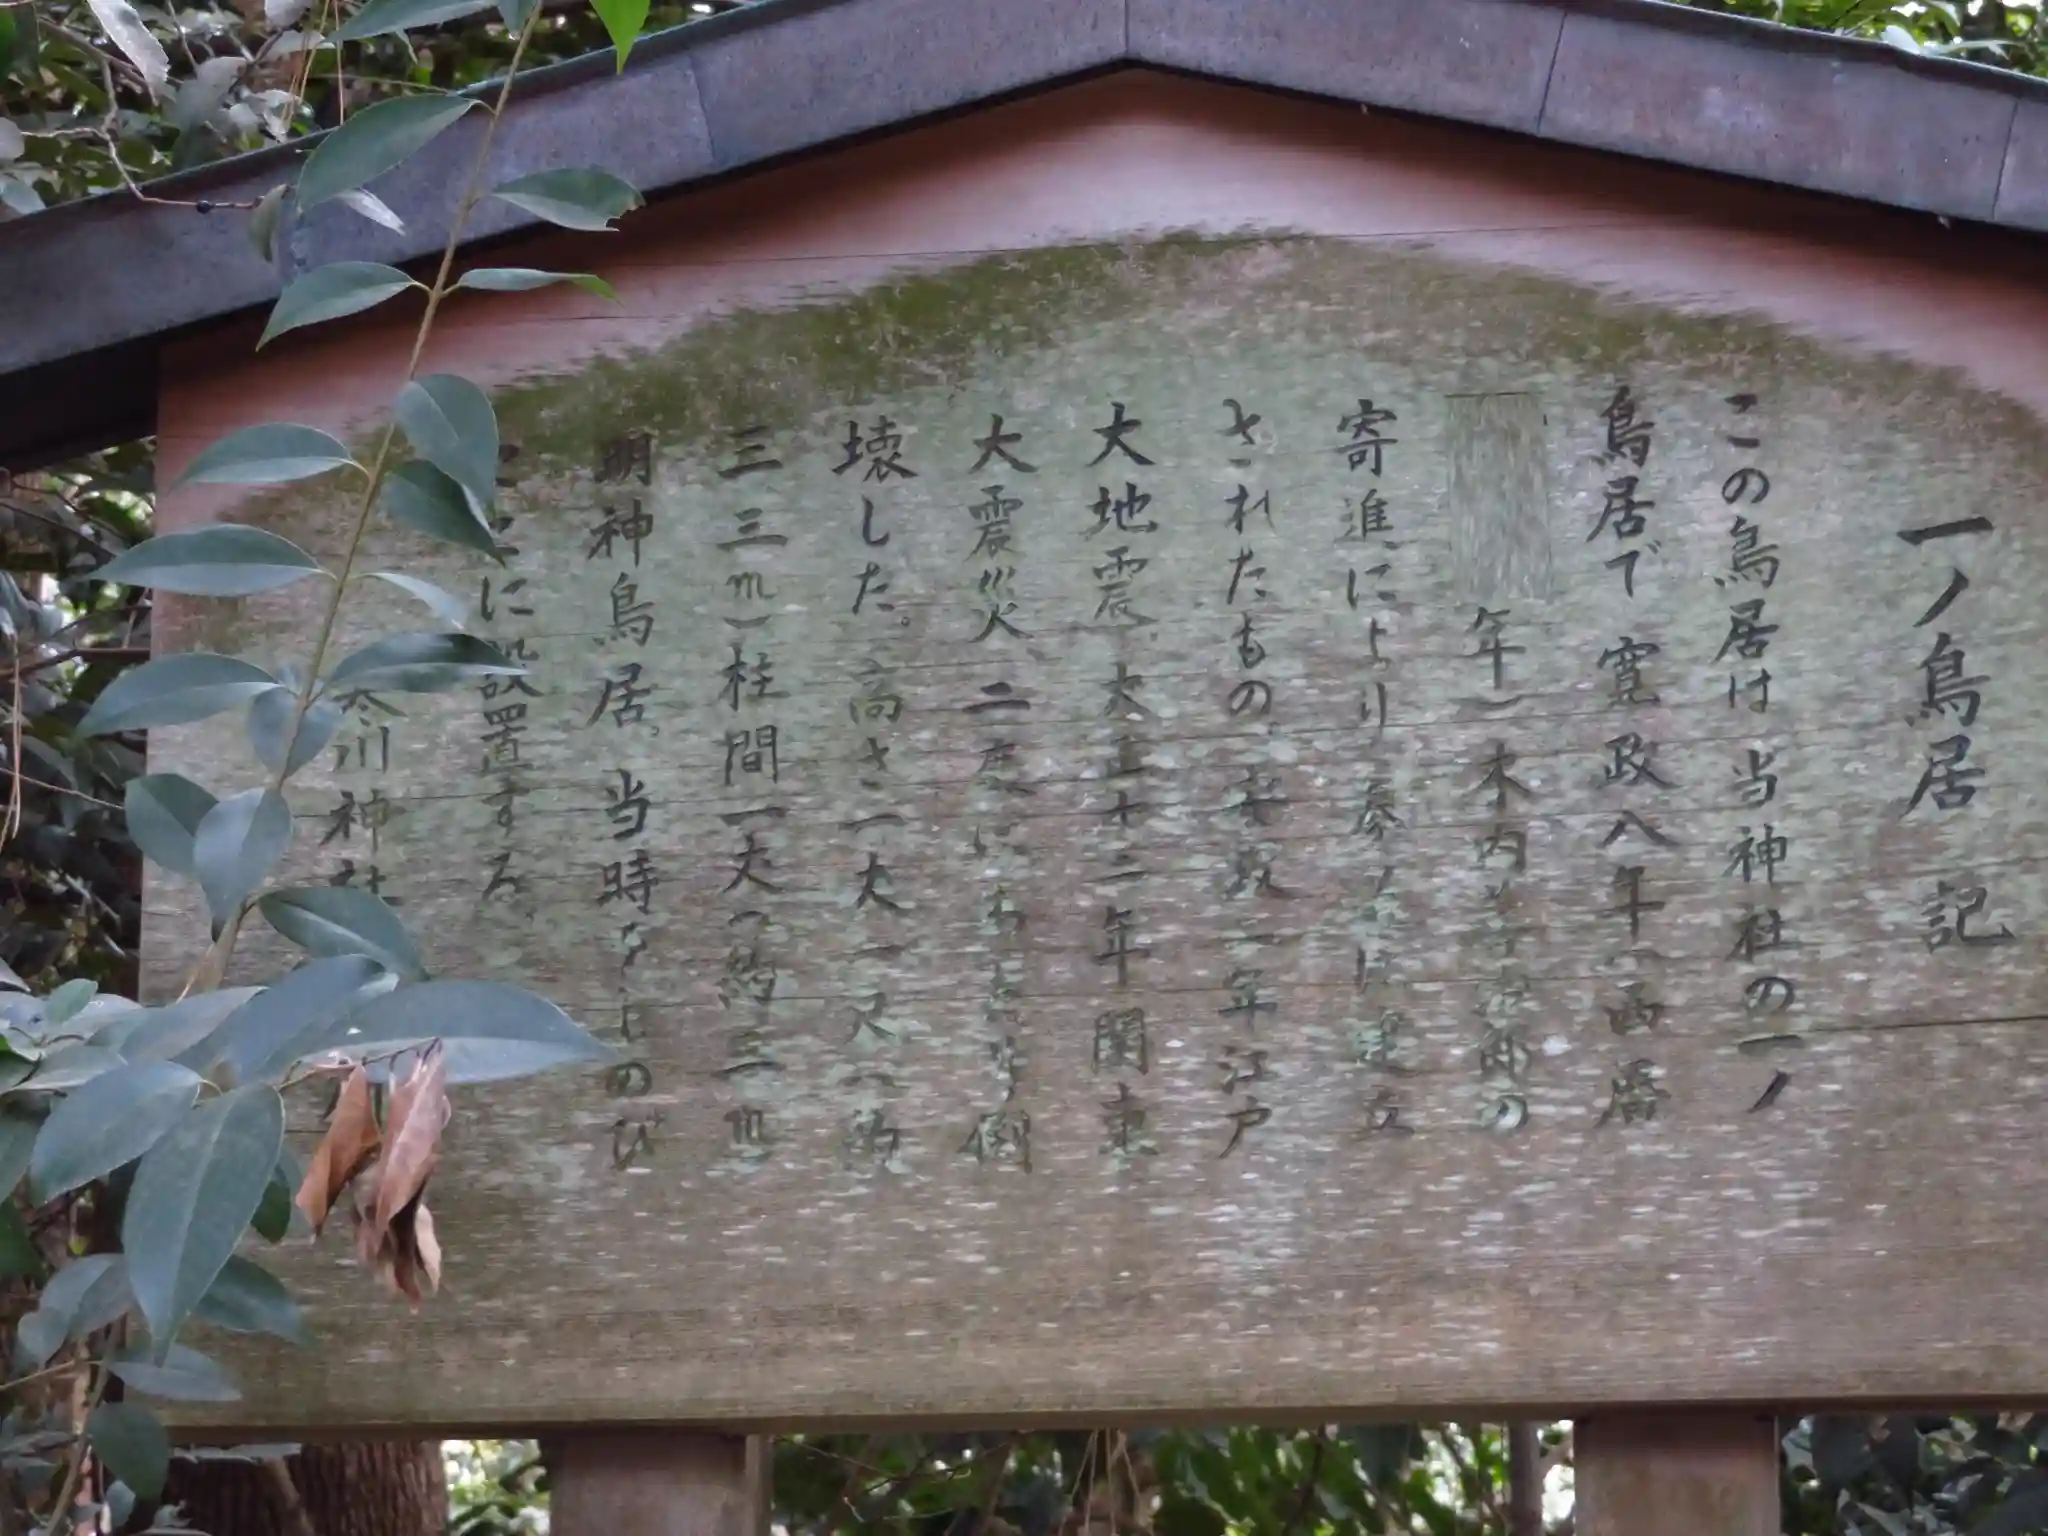 一ノ鳥居 記
この鳥居は当神社の一ノ
鳥居で寛政八年（西暦
年）木内 の
寄進により参 に建立
されたもの。安政二年江戸
大地震、大正十二年関東
大震災、二度にわたり倒
壊した。高さ一丈一尺（約
三、三m）柱間一丈（約三m）
明神鳥居。当時をしのび
ここに設置する。
寒川神社